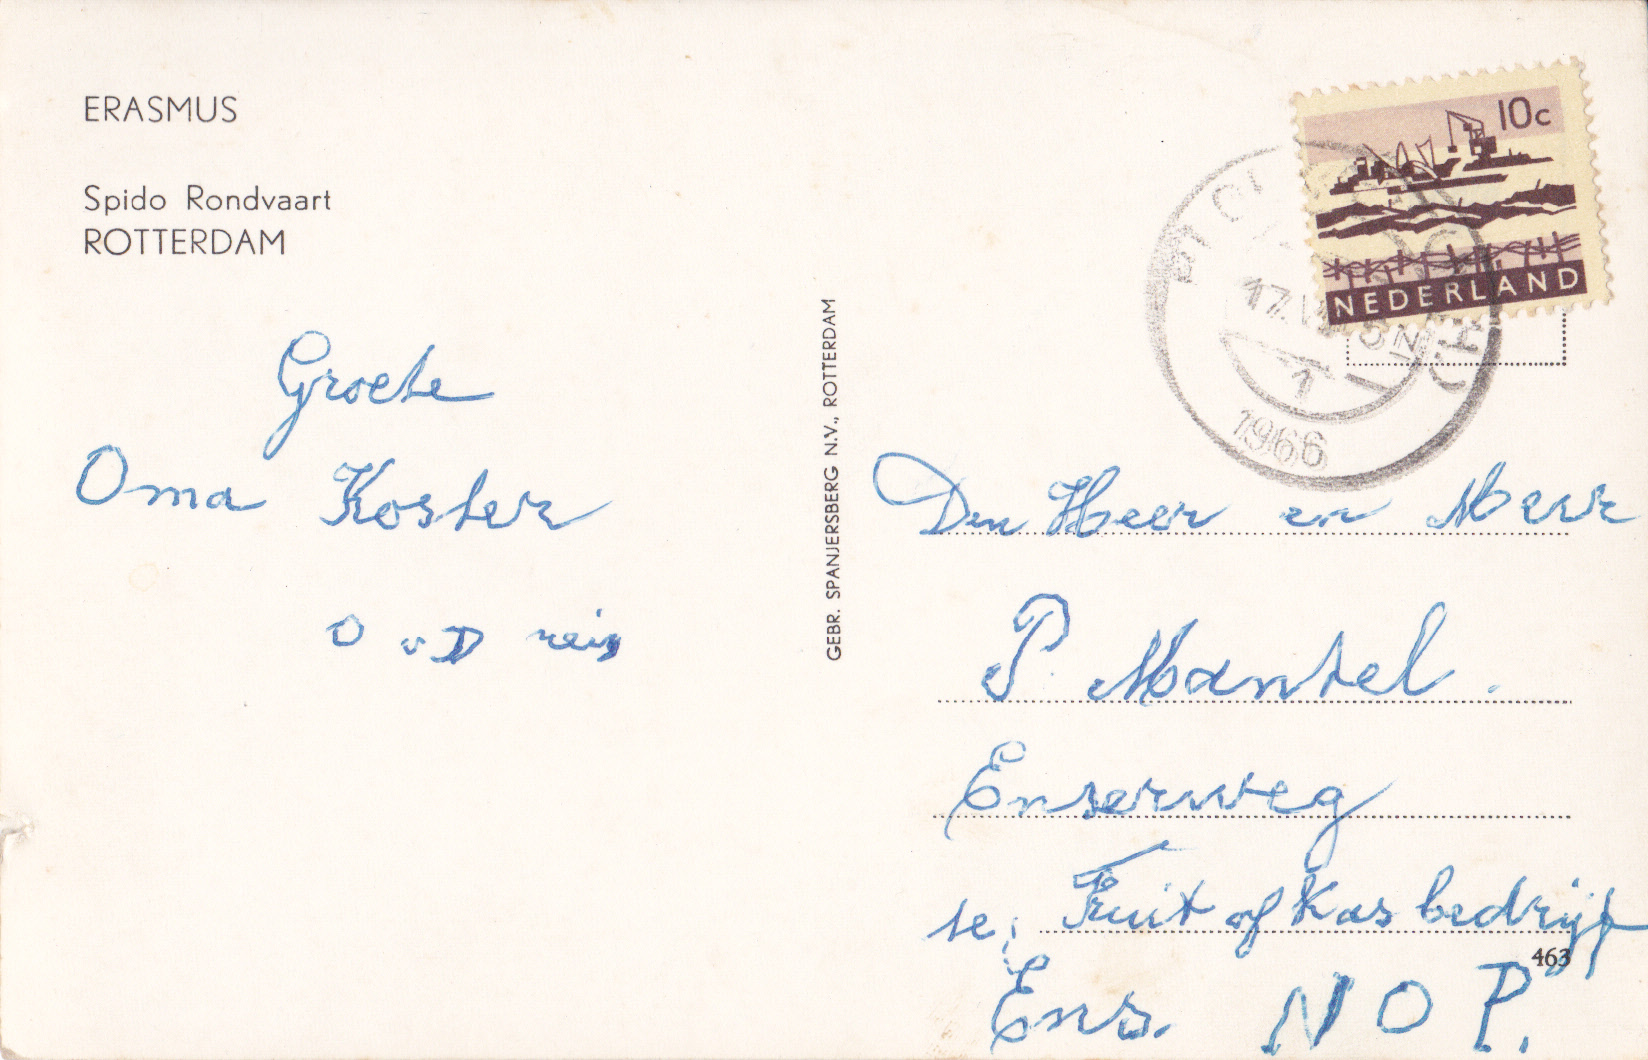 ERASMUS
Spido Rondvaart
ROTTERDAM
Groete
Oma Koster
O v D reis
GEBR. SPANJERSBERG N.V., ROTTERDAM
10c
NEDERLAND
17.V
1
1966
Den Heer en Mevr
P. Mantel.
Enserweg
te; Fruit of Kas bedrijf
463
Ens. N O P.